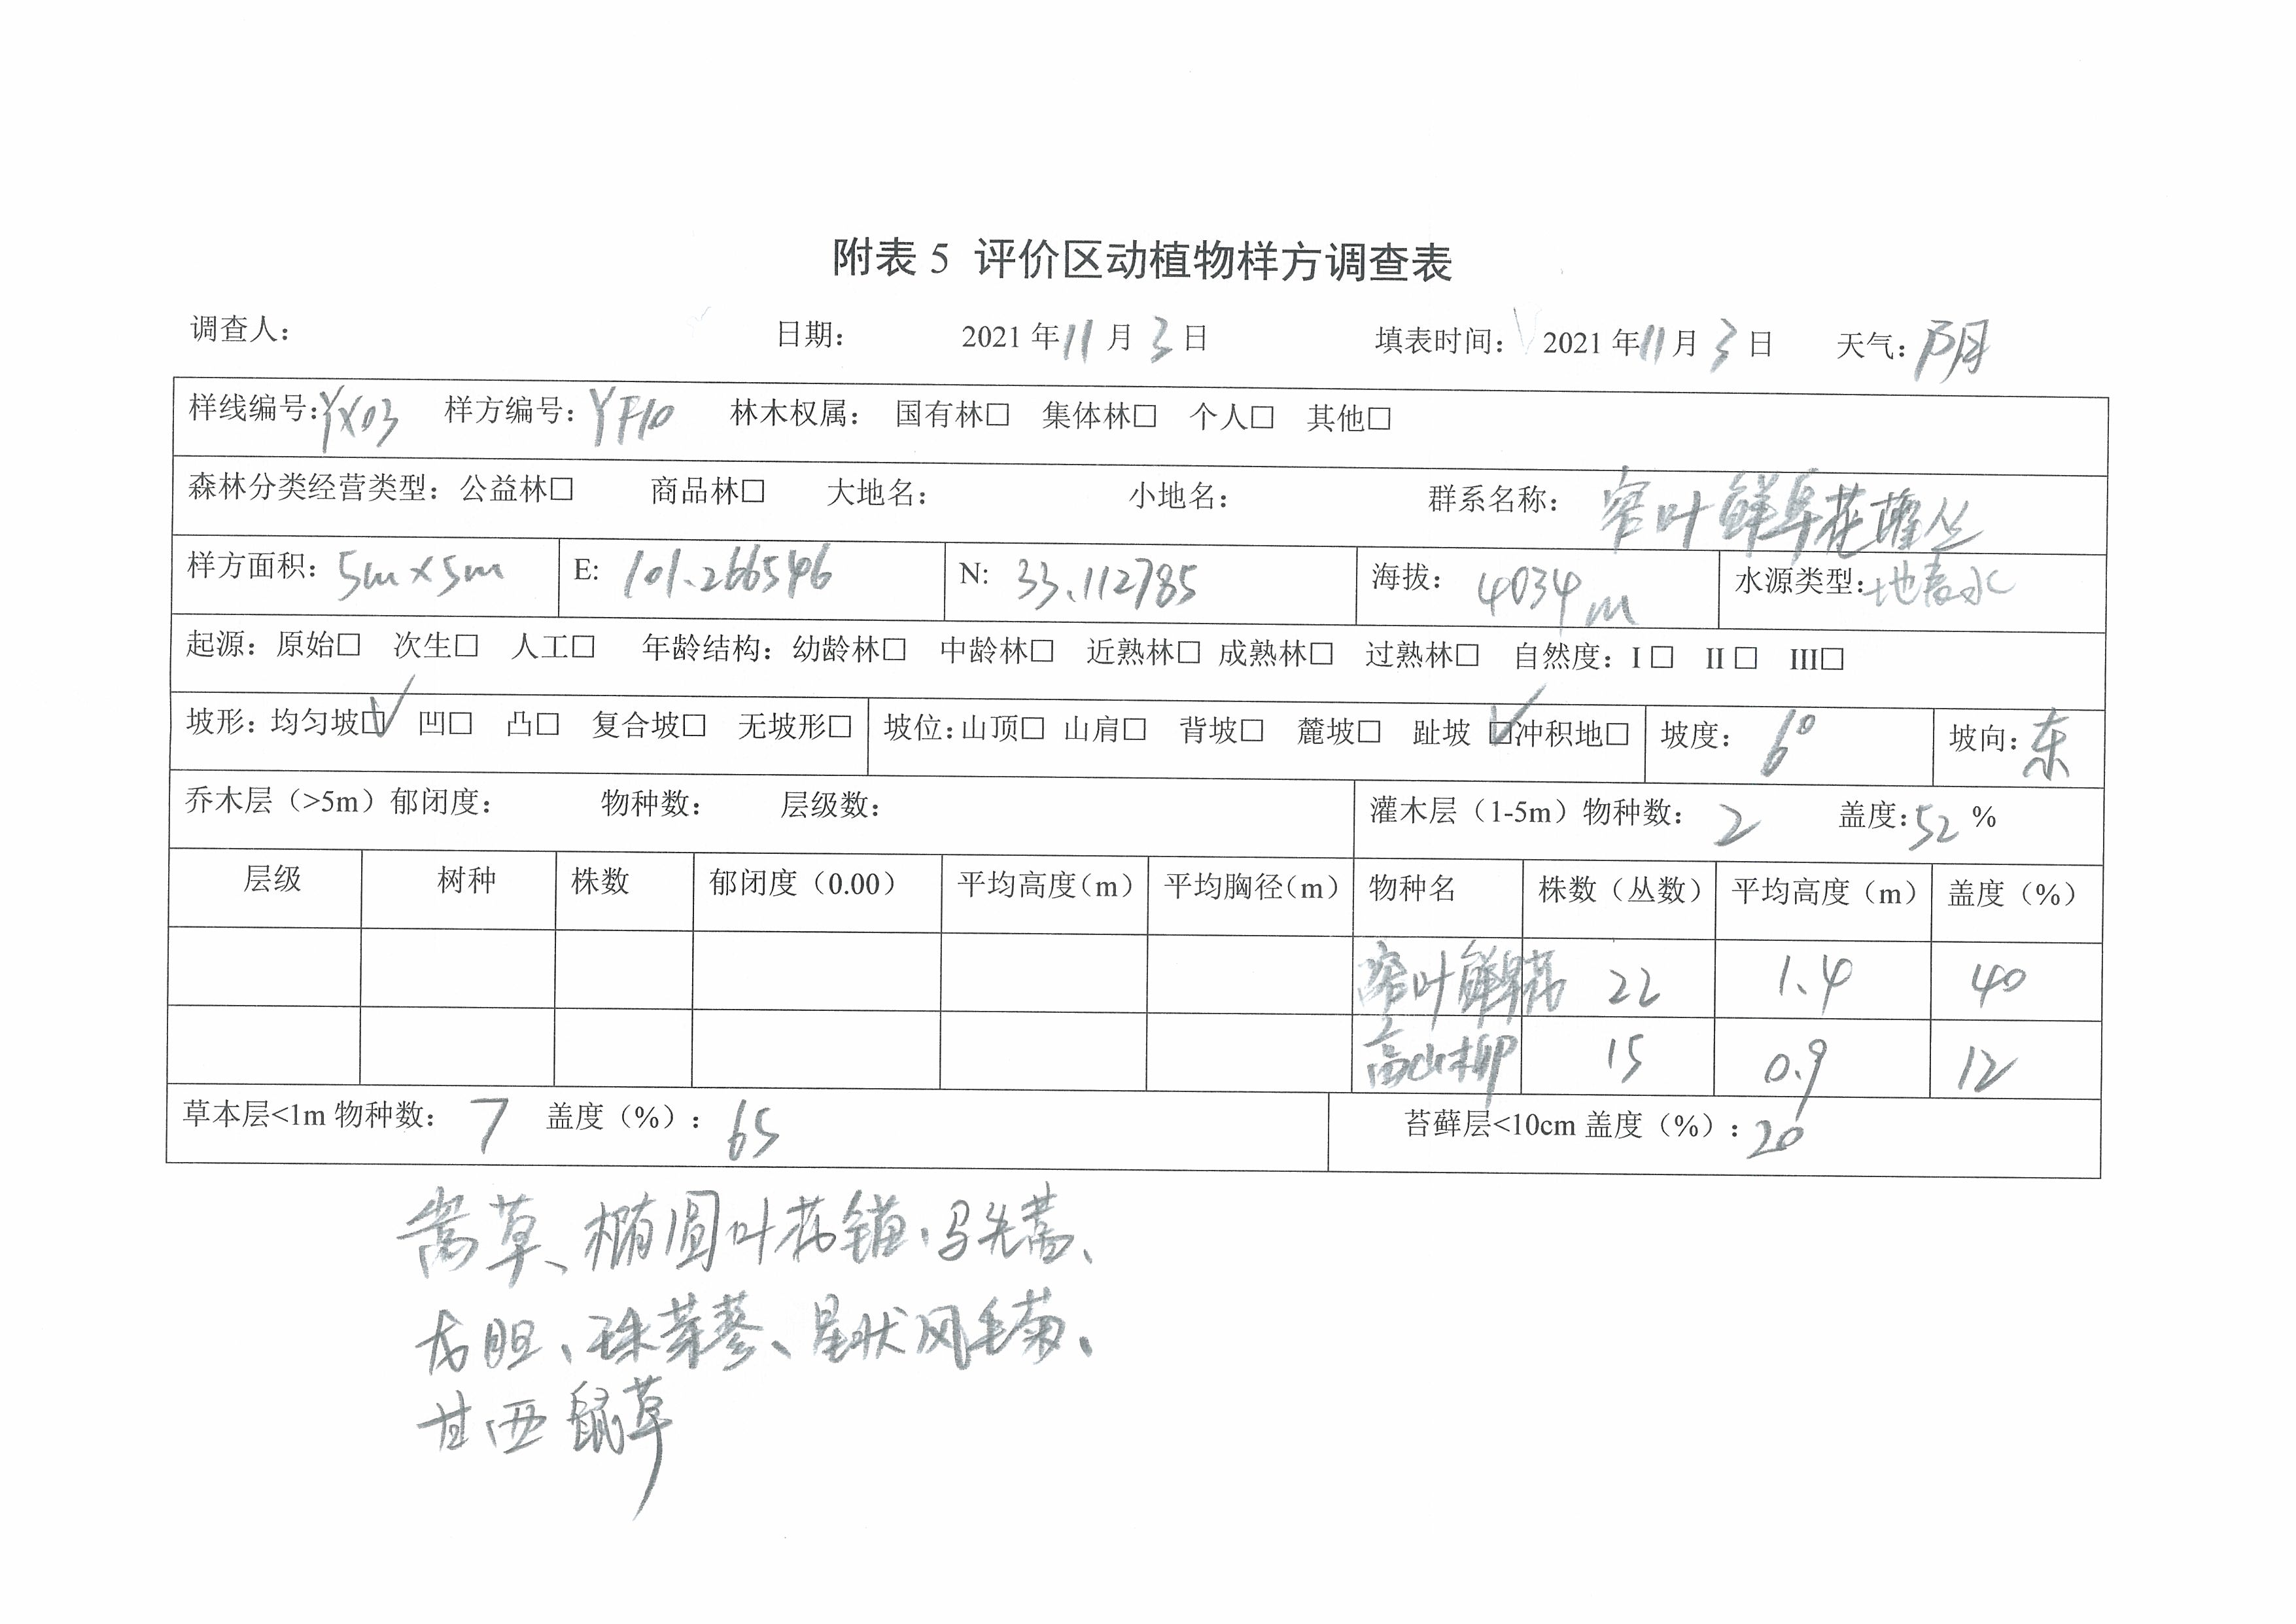 附表 5 评价区动植物样方调查表
调查人： 日期： 2021 年 11 月 3 日 填表时间： 2021 年 11 月 3 日 天气：阴
样线编号：YX03 样方编号：YF10 林木权属： 国有林□ 集体林□ 个人□ 其他□
森林分类经营类型：公益林□ 商品林□ 大地名： 小地名： 群系名称： 窄叶鲜卑花灌丛
样方面积：5m×5m E: 101.266546 N: 33.112785 海拔： 4034m 水源类型：地表水
起源：原始□ 次生□ 人工□ 年龄结构：幼龄林□ 中龄林□ 近熟林□ 成熟林□ 过熟林□ 自然度：I□ II□ III□
坡形：均匀坡☑ 凹□ 凸□ 复合坡□ 无坡形□ 坡位：山顶□ 山肩□ 背坡□ 麓坡□ 趾坡 ☑冲积地□ 坡度： 6° 坡向：东
乔木层（>5m）郁闭度： 物种数： 层级数： 灌木层（1-5m）物种数： 2 盖度：52 %
层级 树种 株数 郁闭度（0.00） 平均高度（m） 平均胸径（m） 物种名 株数（丛数） 平均高度（m） 盖度（%）
窄叶鲜卑花 22 1.4 40
高山柳 15 0.9 12
草本层<1m 物种数： 7 盖度（%）： 65 苔藓层<10cm 盖度（%）：20
嵩草、椭圆叶花锚、马先蒿、
龙胆、珠芽蓼、星状风毛菊、
甘西鼠草